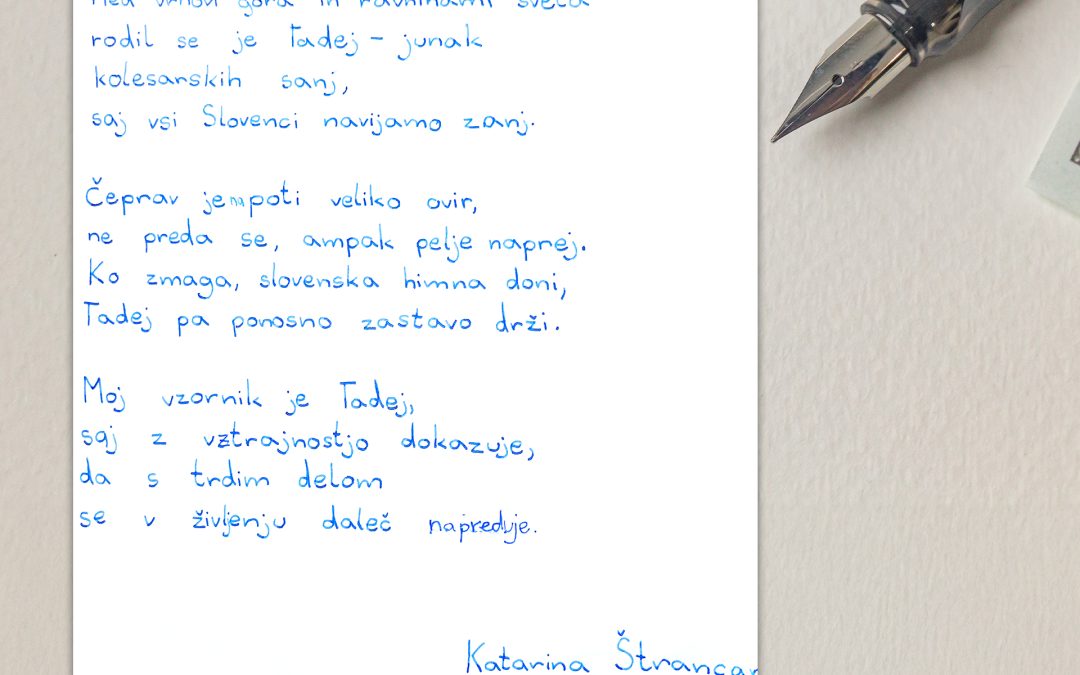 Med vrhovi gora in ravninami sveta
rodil se je Tadej - junak
kolesarskih sanj,
saj vsi Slovenci navijamo zanj.
Čeprav je na poti veliko ovir,
ne preda se, ampak pelje naprej.
Ko zmaga, slovenska himna doni,
Tadej pa ponosno zastavo drži.
Moj vzornik je Tadej,
saj z vztrajnostjo dokazuje,
da s trdim delom
se v življenju daleč napreduje.
Katarina Štrancar